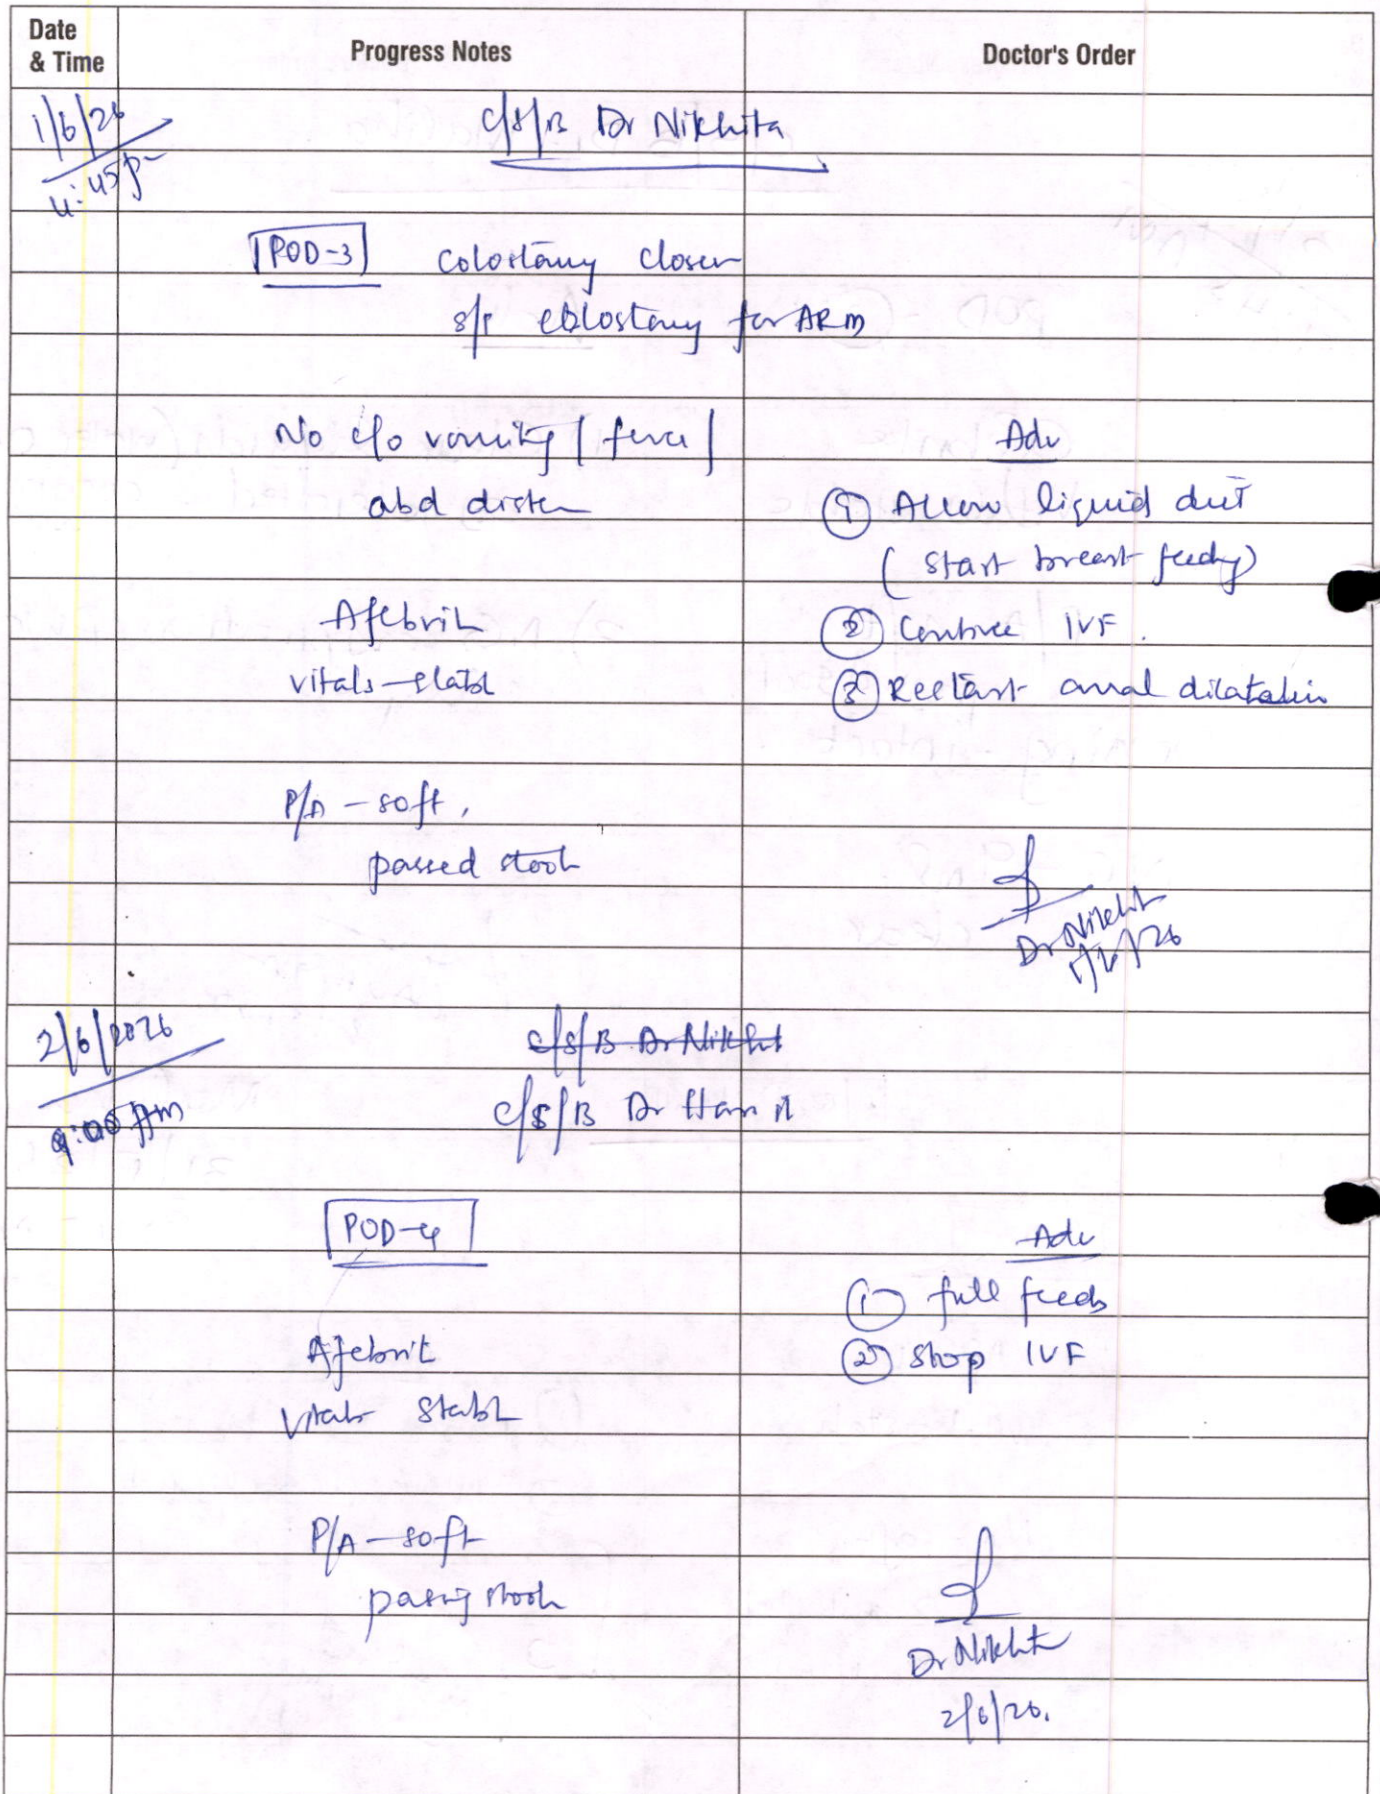 Date
& Time
Progress Notes
Doctor's Order
1/6/26
4:45p
C/S/B Dr Nikhita
POD-3 Colostomy closer
s/p colostomy for ARM
No c/o vomiting / fever /
abd disten
Adv
① Allow liquid diet
(start breast feedy)
Afebrile
② Continue IVF.
vitals - stabl
③ Restart anal dilatation
P/A - soft,
passed stool
Dr Nikhit
1/6/26
2/6/2026
C/S/B Dr Nikhit
9:00 Am
C/S/B Dr
POD-4
Adv
① full feeds
Afebril
② Stop IVF
Vitals stabl
P/A - soft
passing stool
Dr Nikhit
2/6/26.